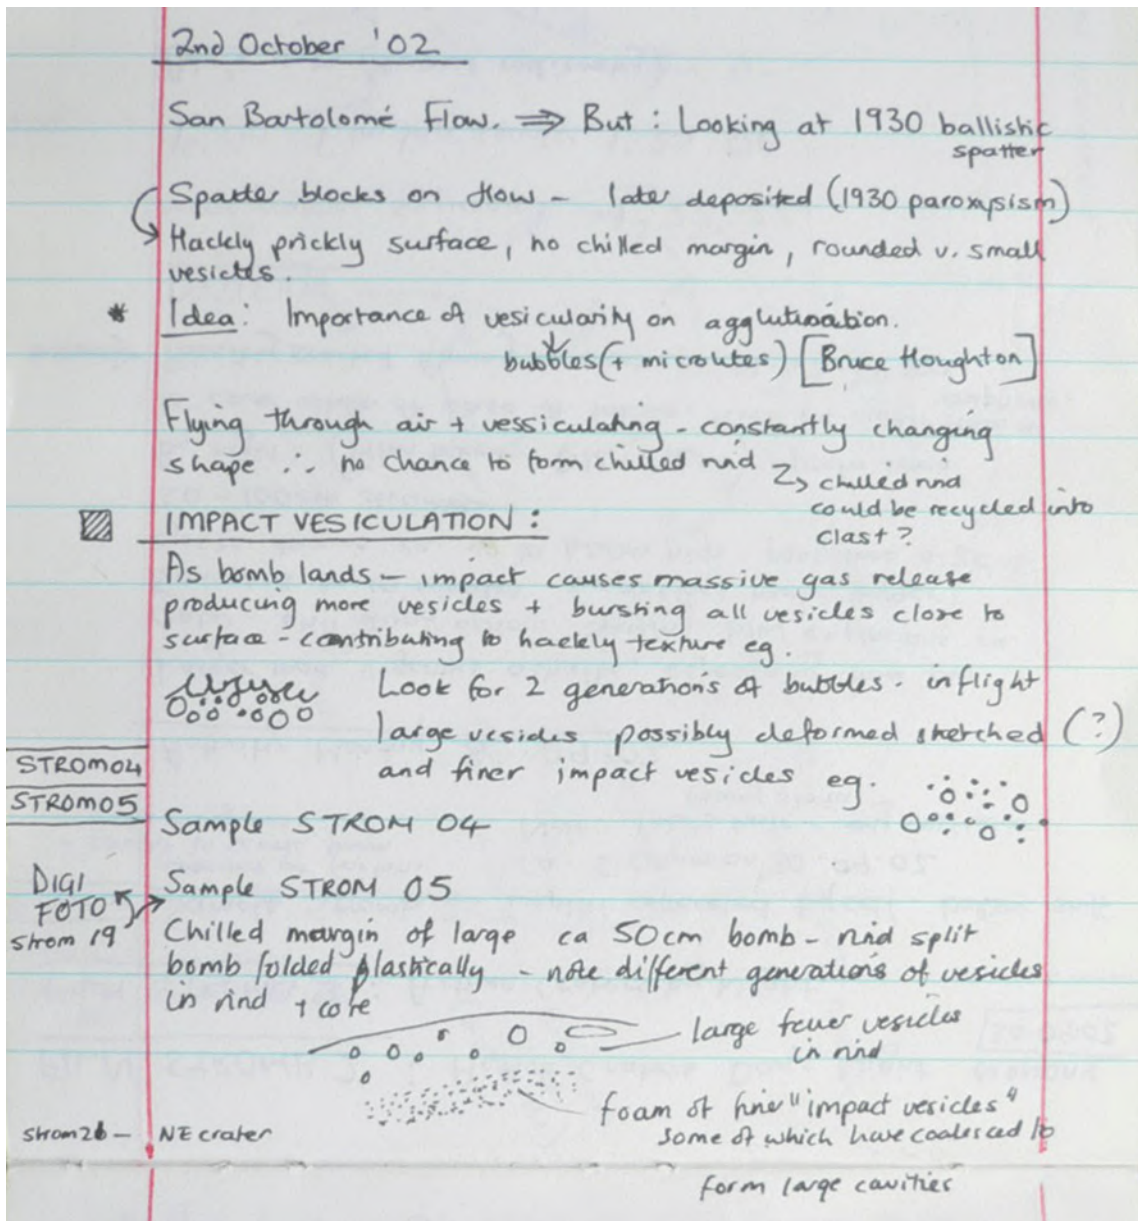 2nd October '02
San Bartolomé Flow. ⇒ But : Looking at 1930 ballistic
spatter
Spatter blocks on flow - later deposited (1930 paroxysism)
Hackly prickly surface, no chilled margin, rounded v. small
vesicles.
* Idea: Importance of vesicularity on agglutination.
bubbles (+ microlites) [Bruce Houghton]
Flying through air + vessiculating - constantly changing
shape ∴ no chance to form chilled rind
chilled rind
could be recycled into
clast?
IMPACT VESICULATION :
As bomb lands - impact causes massive gas release
producing more vesicles + bursting all vesicles close to
surface - contributing to hackly texture eg.
Look for 2 generations of bubbles - inflight
large vesicles possibly deformed stretched (?)
and finer impact vesicles eg.
STROM04
STROM05
Sample STROM 04
DIGI
FOTO
strom 19
Sample STROM 05
Chilled margin of large ca 50cm bomb - rind split
bomb folded plastically - note different generations of vesicles
in rind + core
large fewer vesicles
in rind
foam of fine "impact vesicles"
some of which have coalesced to
form large cavities
strom 26 - NE crater